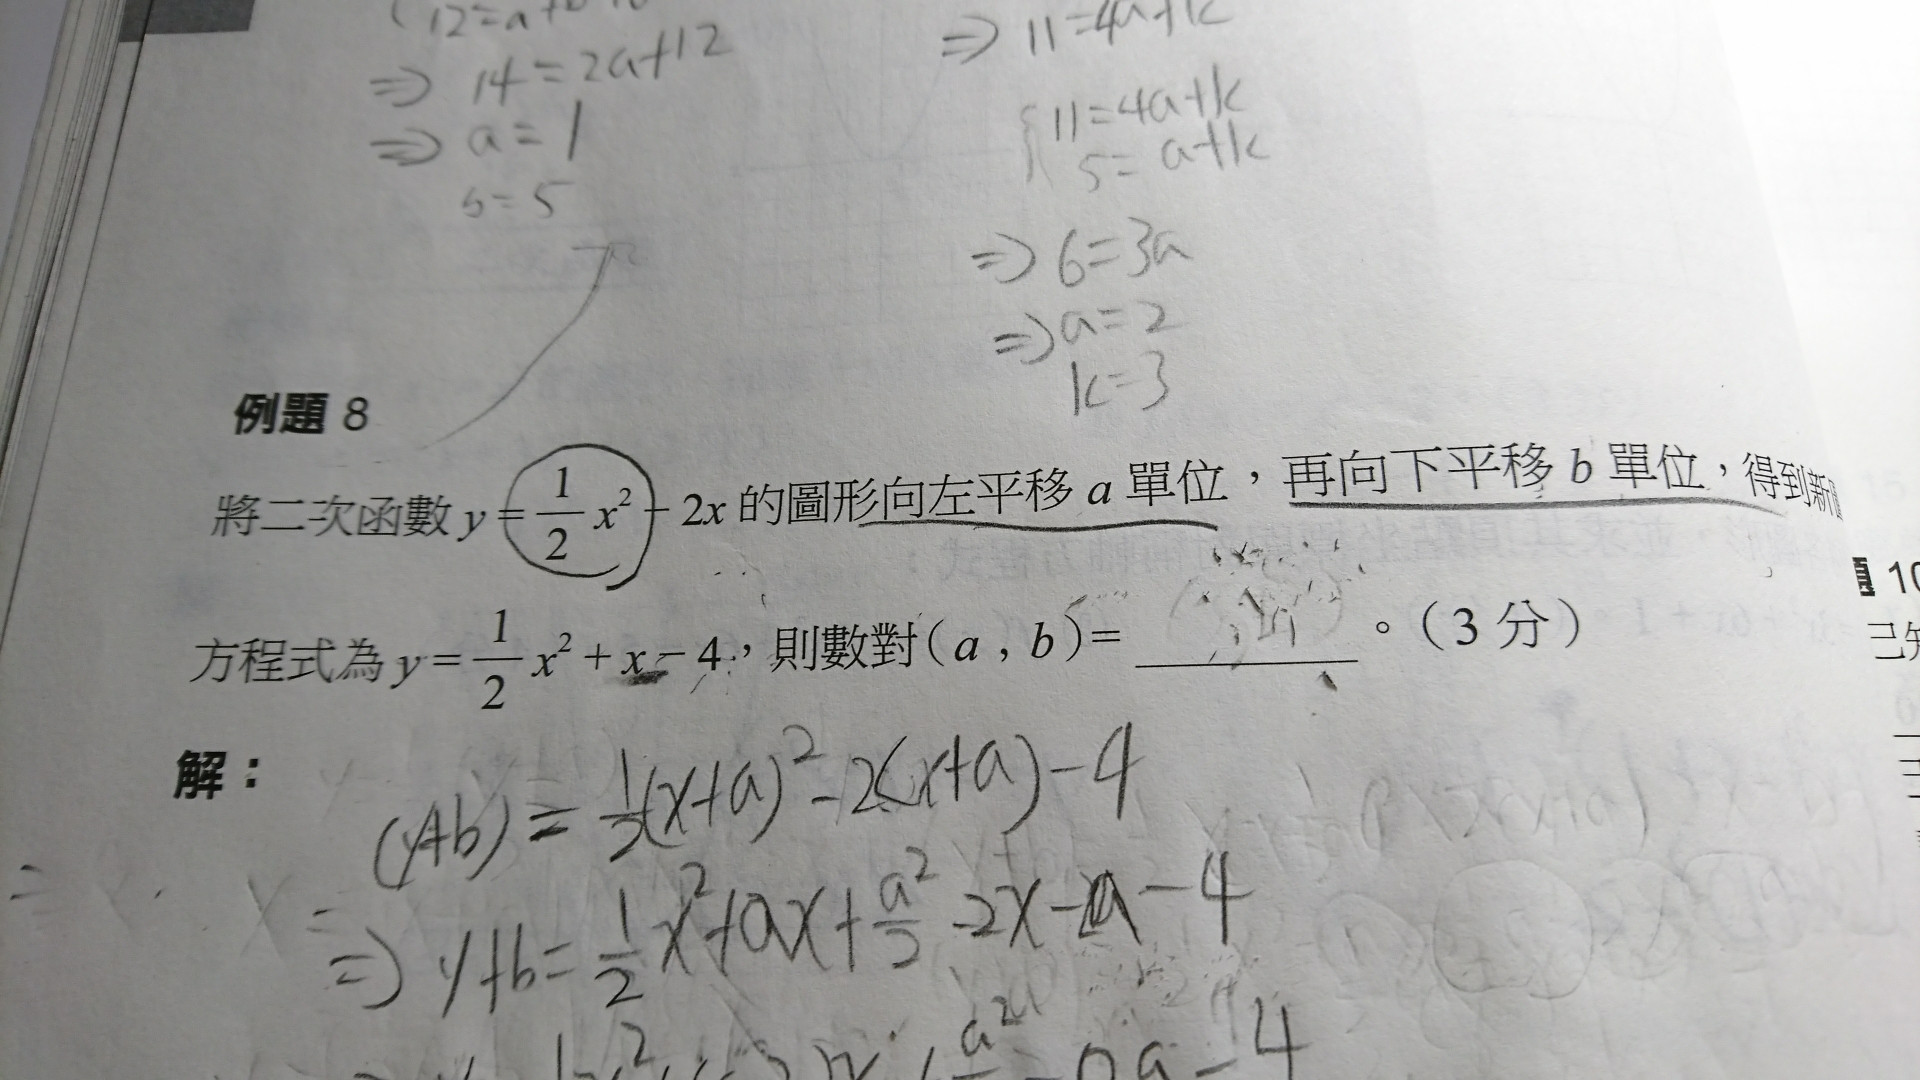 12=a+b+6
⇒ 14=2a+12
⇒ a=1
b=5
⇒ 11=4a+k
11=4a+k
5=a+k
⇒ 6=3a
⇒ a=2
k=3
例題 8
將二次函數 y=1/2 x²-2x 的圖形向左平移 a 單位，再向下平移 b 單位，得到新
方程式為 y=1/2 x²+x-4，則數對(a , b)=＿＿＿＿。(3 分)
解：
(y+b)=1/2(x+a)²-2(x+a)-4
⇒ y+b=1/2x²+ax+a²/2-2x-2a-4
10
已知